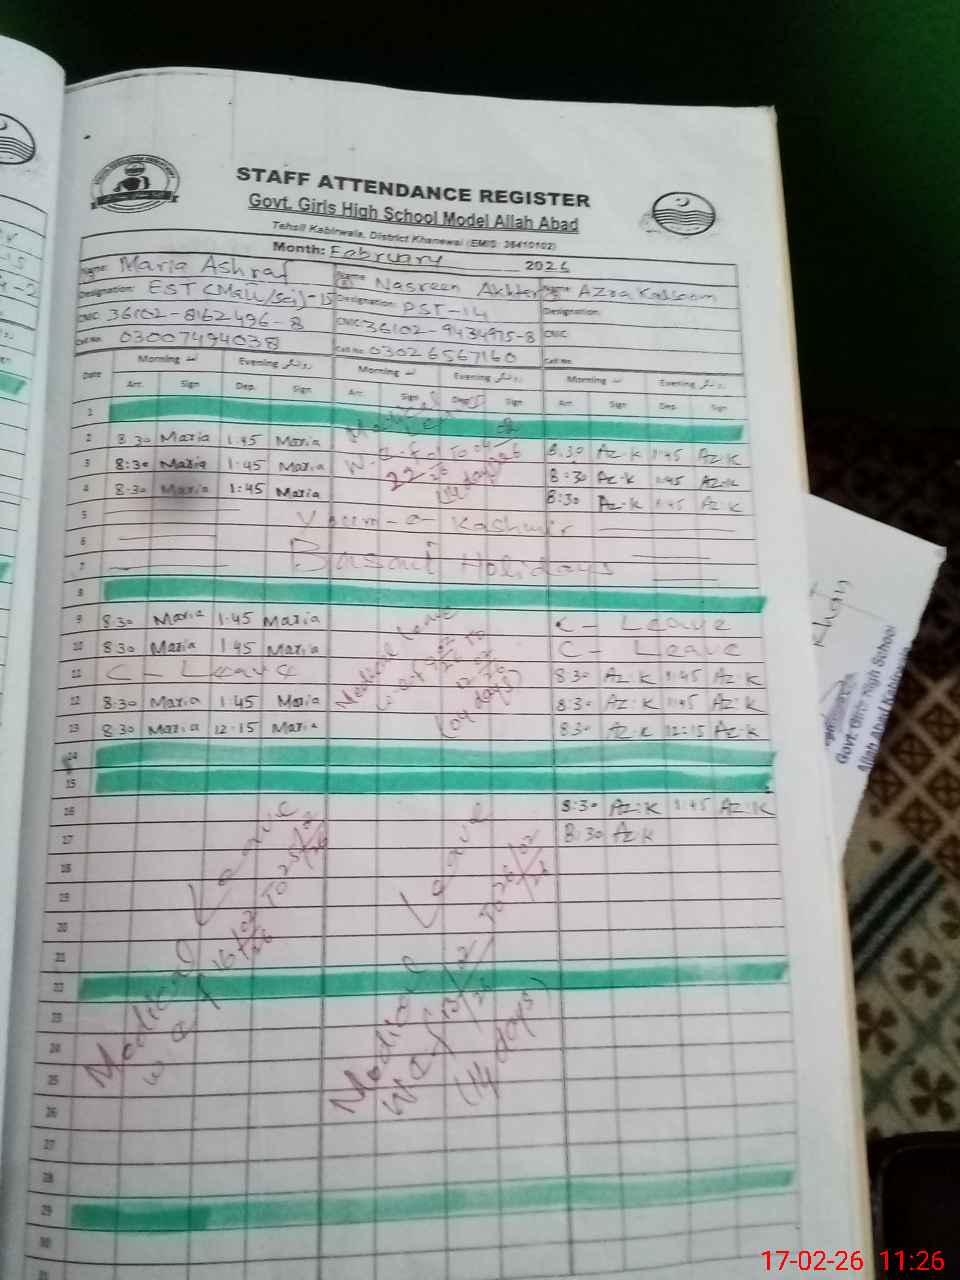 STAFF ATTENDANCE REGISTER
Govt. Girls High School Model Allah Abad
Tehsil Kabirwala, District Khanewal (EMIS: 36410102)
Month: February 2026
Name: Maria Ashraf Name Nasreen Akhter Name Azra Kalsoom
Designation: EST (Math/Sci)-15 Designation: PST-14 Designation:
CNIC 36102-8162496-8 CNIC 36102-9434975-8 CNIC
Cell No. 03007494038 Cell No. 03026567160 Cell No.
Date Morning Evening Morning Evening Morning Evening
Arr. Sign Dep. Sign Arr. Sign Dep. Sign Arr. Sign Dep. Sign
1
2 8 30 Maria 1:45 Maria 8:30 Az.K 1:45 Az.K
3 8:30 Maria 1:45 Maria 8:30 Az.K 1:45 Az.K
4 8:30 Maria 1:45 Maria 8:30 Az.K 1:45 Az.K
5 Youm-e-Kashmir
6
7 Basant Holidays
8
9 8:30 Maria 1:45 Maria C- Leave
10 8:30 Maria 1:45 Maria Medical Leave C- Leave
11 C- Leave 8:30 Az.K 1:45 Az.K
12 8:30 Maria 1:45 Maria (04 days) 8:30 Az.K 1:45 Az.K
13 8:30 Maria 12:15 Maria 8:30 Az.K 12:15 Az.K
14
15
16 8:30 Az.K 1:45 Az.K
17 8:30 Az.K
18
19
20
21
22
23
24
25
26
27
28
29
30
31
Medical Leave
w e f 16/02/26 To 25/2/26
Medical Leave
w e f 13/2/26 To 26/02/26
(14 days)
Khan
Govt. Girls High School
Allah Abad Kabirwala
17-02-26 11:26